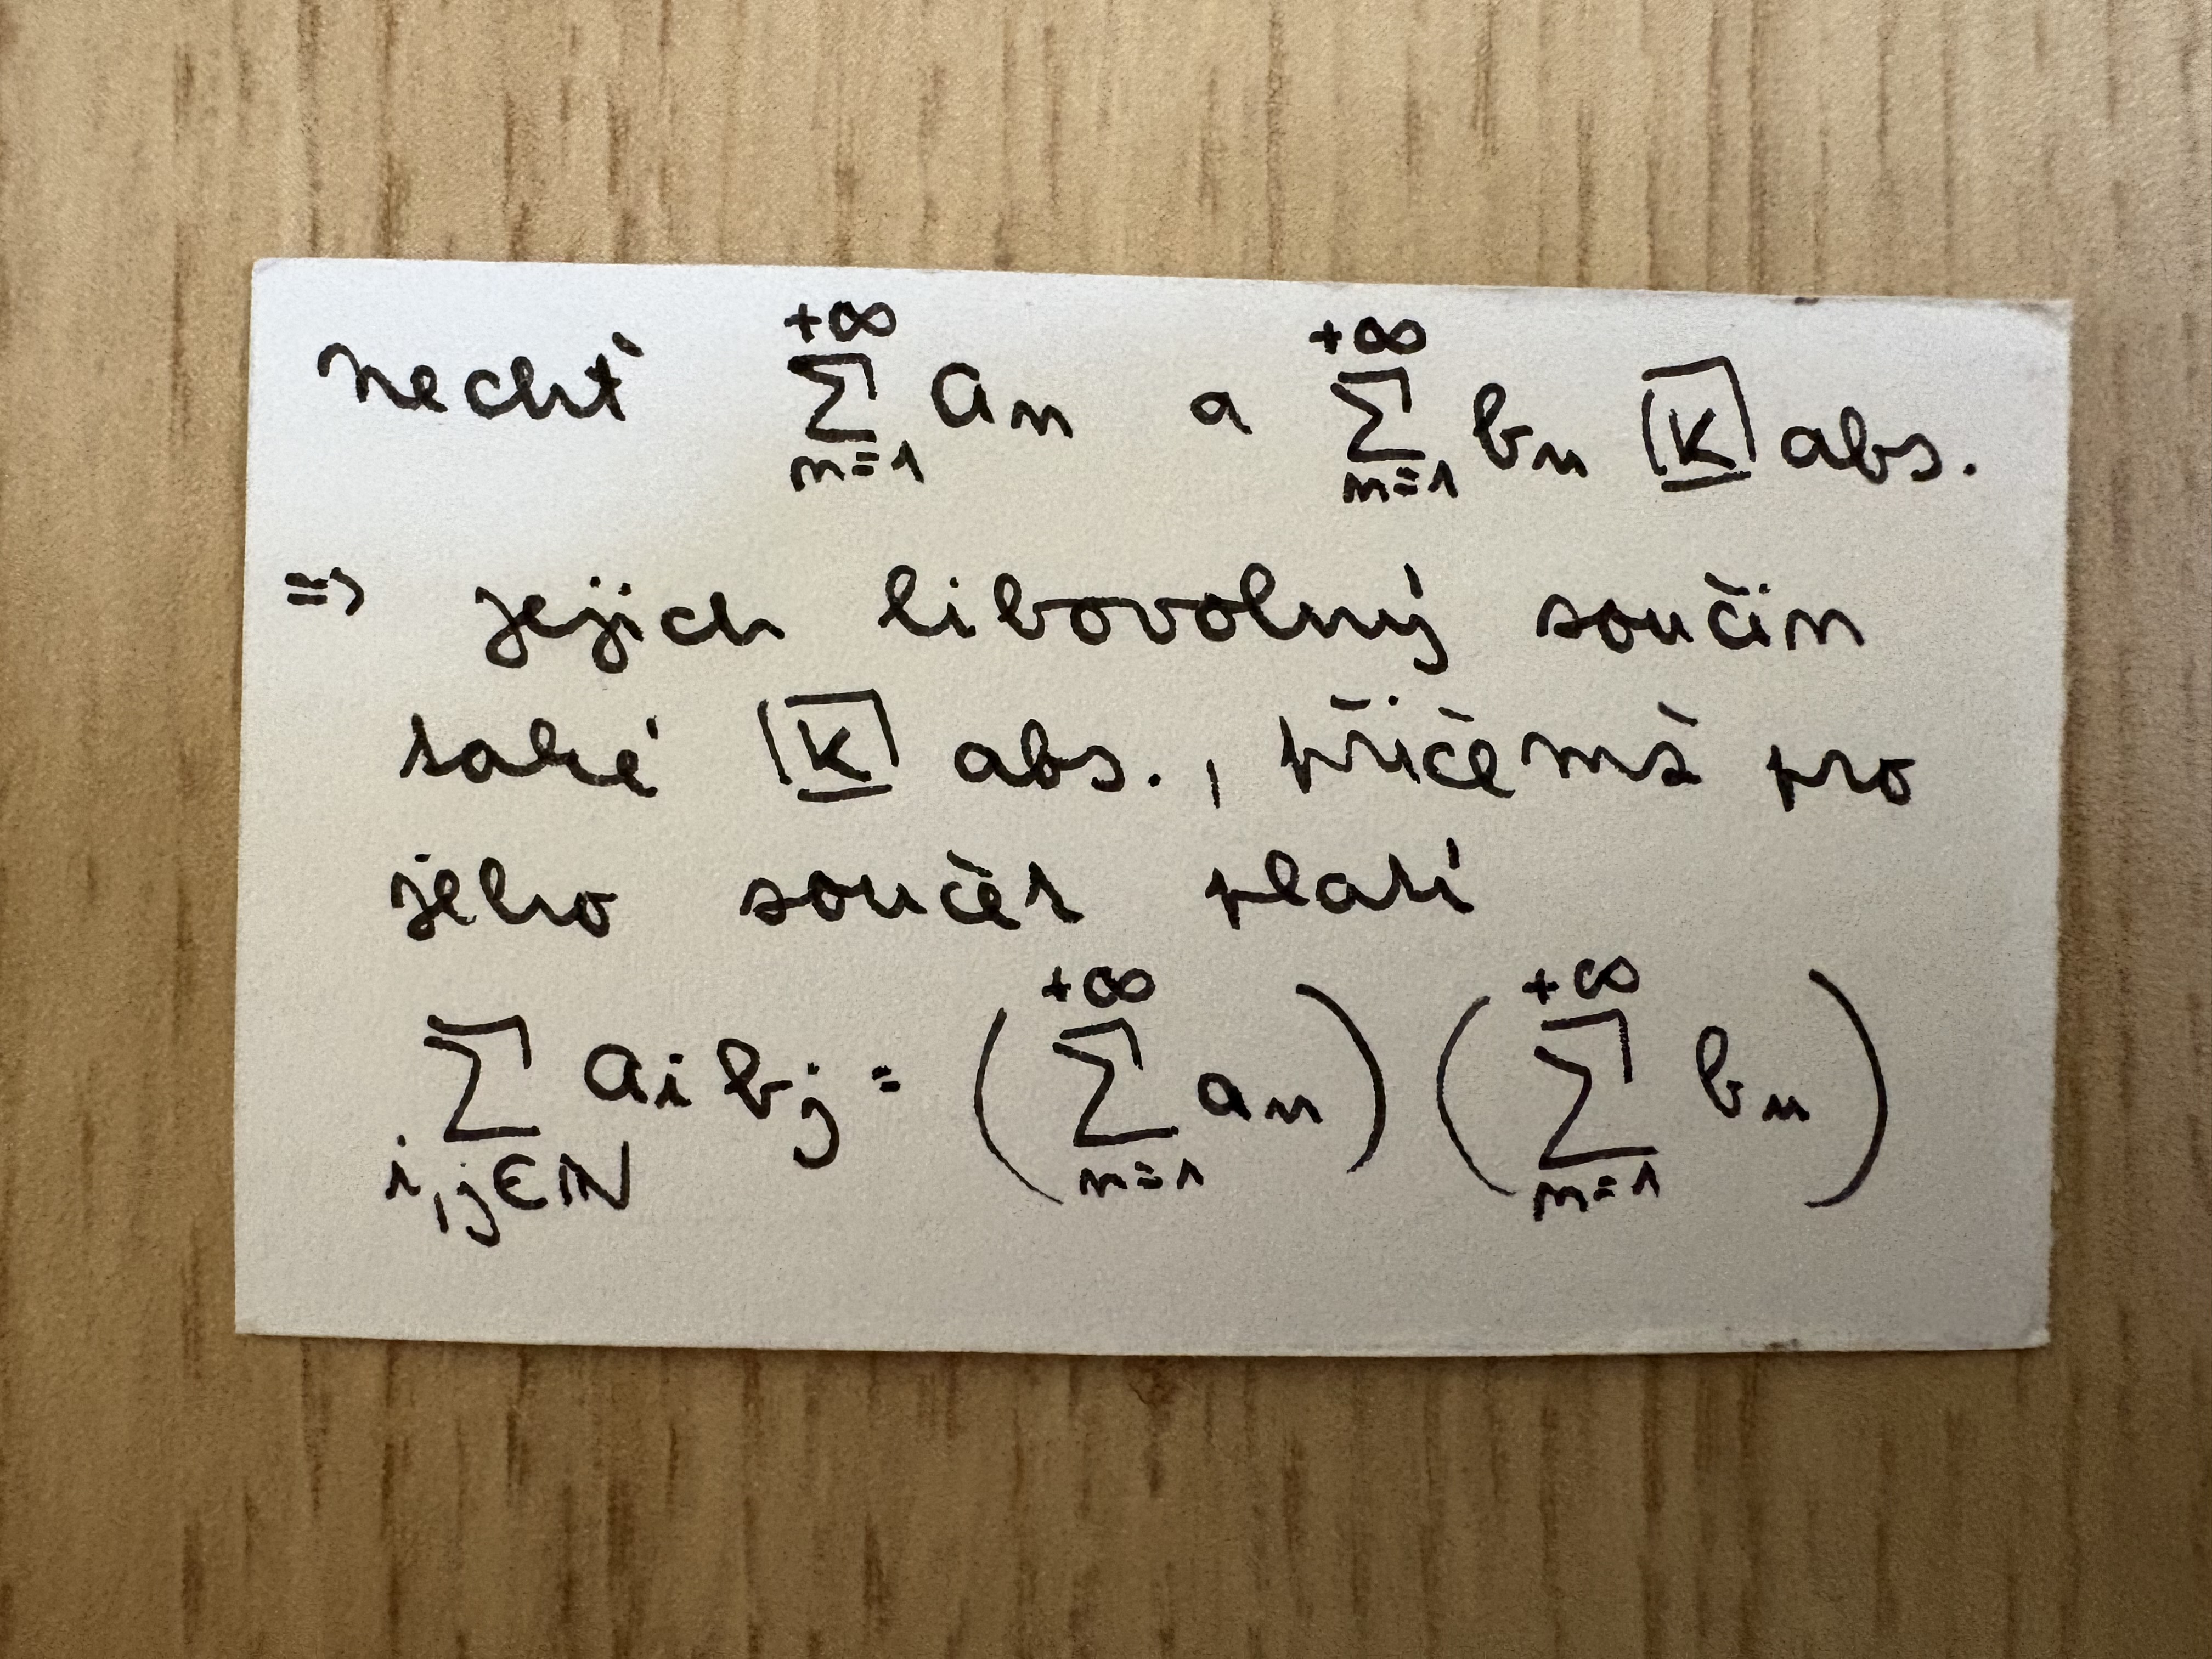 nechť $\sum_{n=1}^{+\infty} a_n$ a $\sum_{n=1}^{+\infty} b_n$ $\boxed{K}$ abs.
⇒ jejich libovolný součin
také $\boxed{K}$ abs., přičemž pro
jeho součet platí
$\sum_{i,j \in \mathbb{N}} a_i b_j = \left( \sum_{n=1}^{+\infty} a_n \right) \left( \sum_{n=1}^{+\infty} b_n \right)$